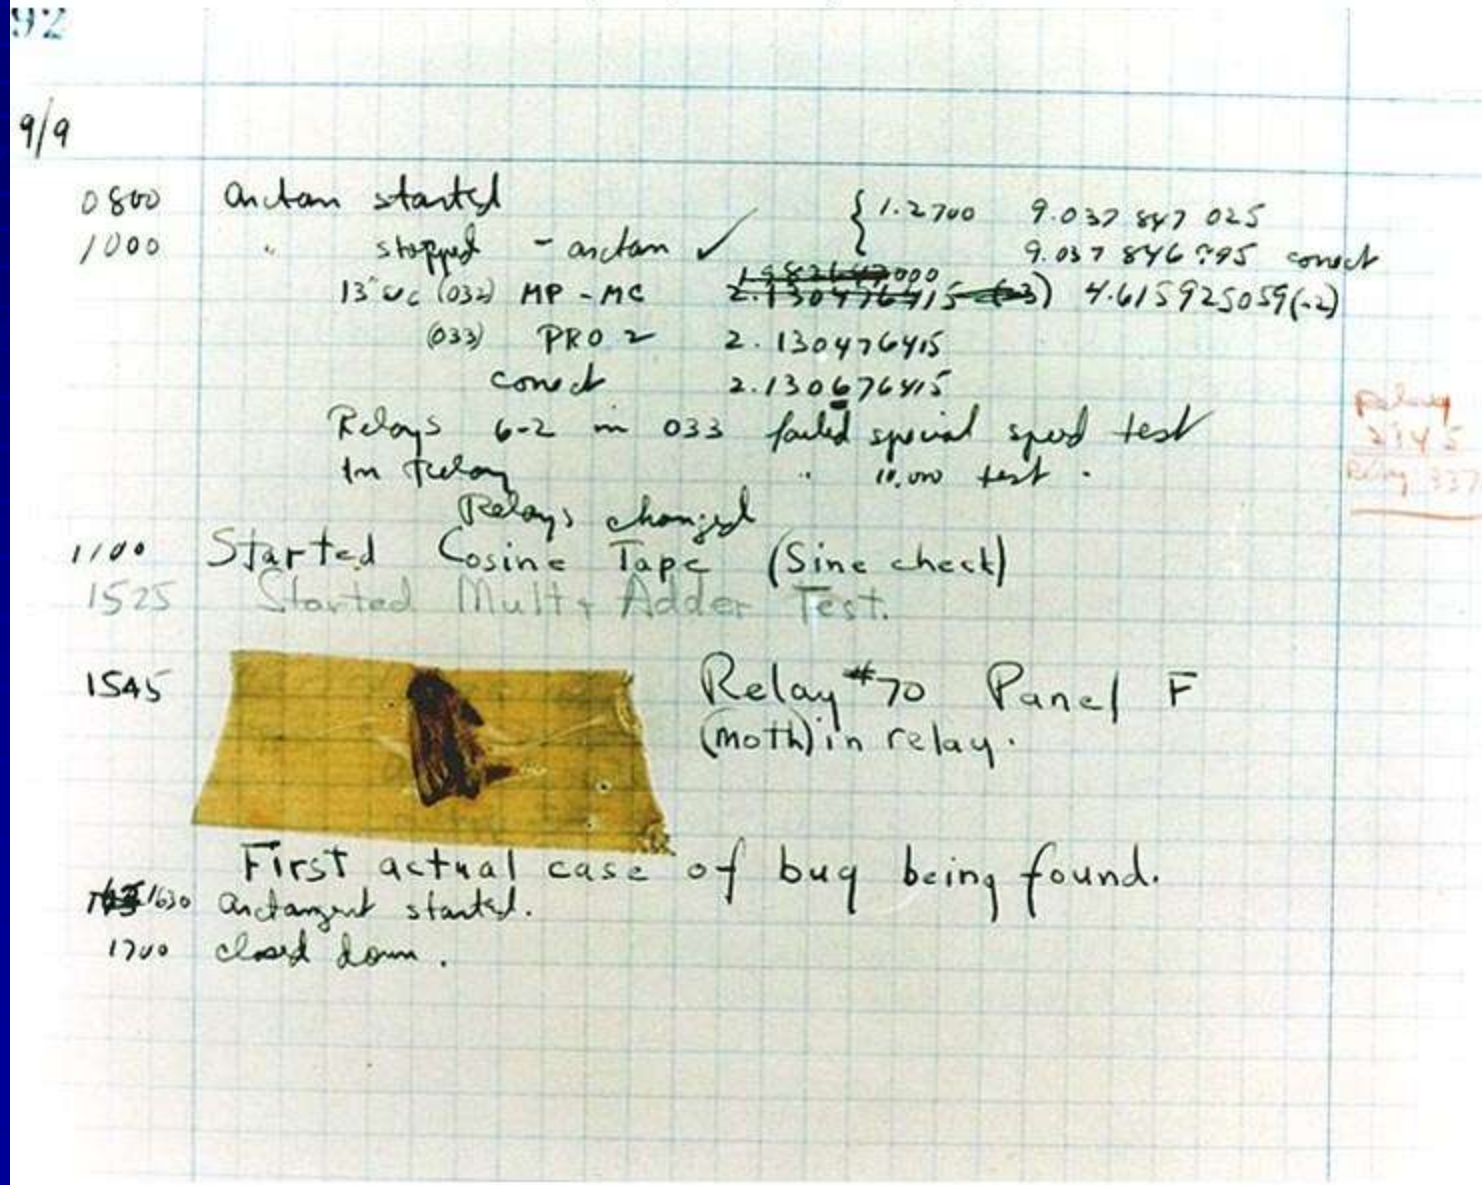 92
9/9
0800 Antan started { 1.2700 9.037 847 025
1000 " stopped - antan ✓ 9.037 846 995 conect
13" uc (032) MP - MC 1.982647000 2.130476415 (-3) 4.615925059(-2)
(033) PRO 2 2.130476415
conect 2.130676415
Relays 6-2 in 033 failed special speed test
In Relay " 10,000 test .
Relays changed
1100 Started Cosine Tape (Sine check)
1525 Started Mult + Adder Test.
1545 Relay #70 Panel F
(moth) in relay.
First actual case of bug being found.
1630 antangent started.
1700 closed down .
Relay
2145
Relay 337